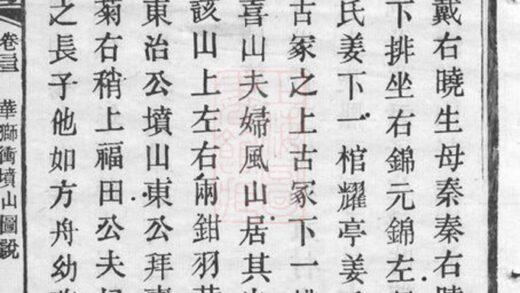 戴右曉生母秦秦右曉
下排坐右錦元錦左
氏姜下一棺耀亭姜
古冢之上古冢下一
喜山夫婦風山居其
該山上左右兩鉗羽
東治公墳山東公拜
菊右稍上福田公夫
之長子他如方舟幼
卷三 華獅衝墳山圖說